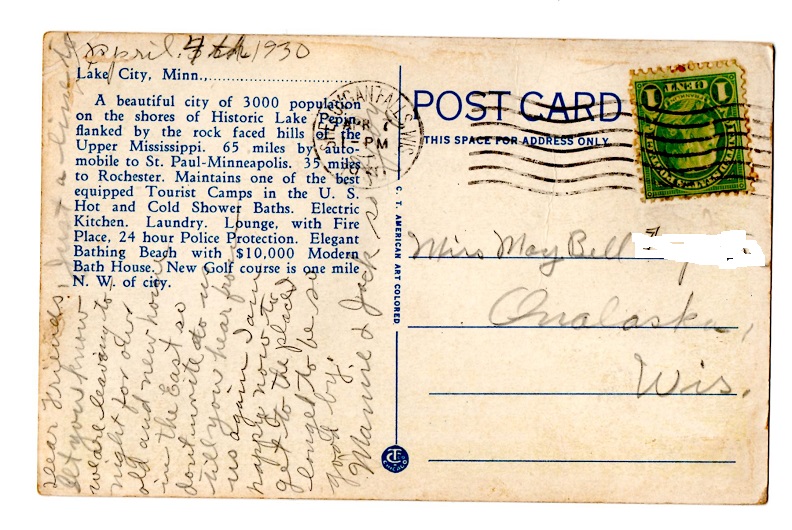 April 7th 1930
Lake City, Minn.,
A beautiful city of 3000 population
on the shores of Historic Lake Pepin,
flanked by the rock faced hills of the
Upper Mississippi. 65 miles by auto-
mobile to St. Paul-Minneapolis. 35 miles
to Rochester. Maintains one of the best
equipped Tourist Camps in the U. S.
Hot and Cold Shower Baths. Electric
Kitchen. Laundry. Lounge, with Fire
Place, 24 hour Police Protection. Elegant
Bathing Beach with $10,000 Modern
Bath House. New Golf course is one mile
N. W. of city.
Dear Friends, Just a time to
let you know
we are leaving to
night for our
old and new home
in the East so
dont write to us
till you hear from
us again I am
happy now to
get to the place I
longed to be so
good by,
Mamie & Jack
C. T. AMERICAN ART COLORED
CHICAGO
POST CARD
THIS SPACE FOR ADDRESS ONLY
FALLS, WIS.
APR 7
PM
1 CENT 1
Miss May Bell
Onalaska,
Wis.